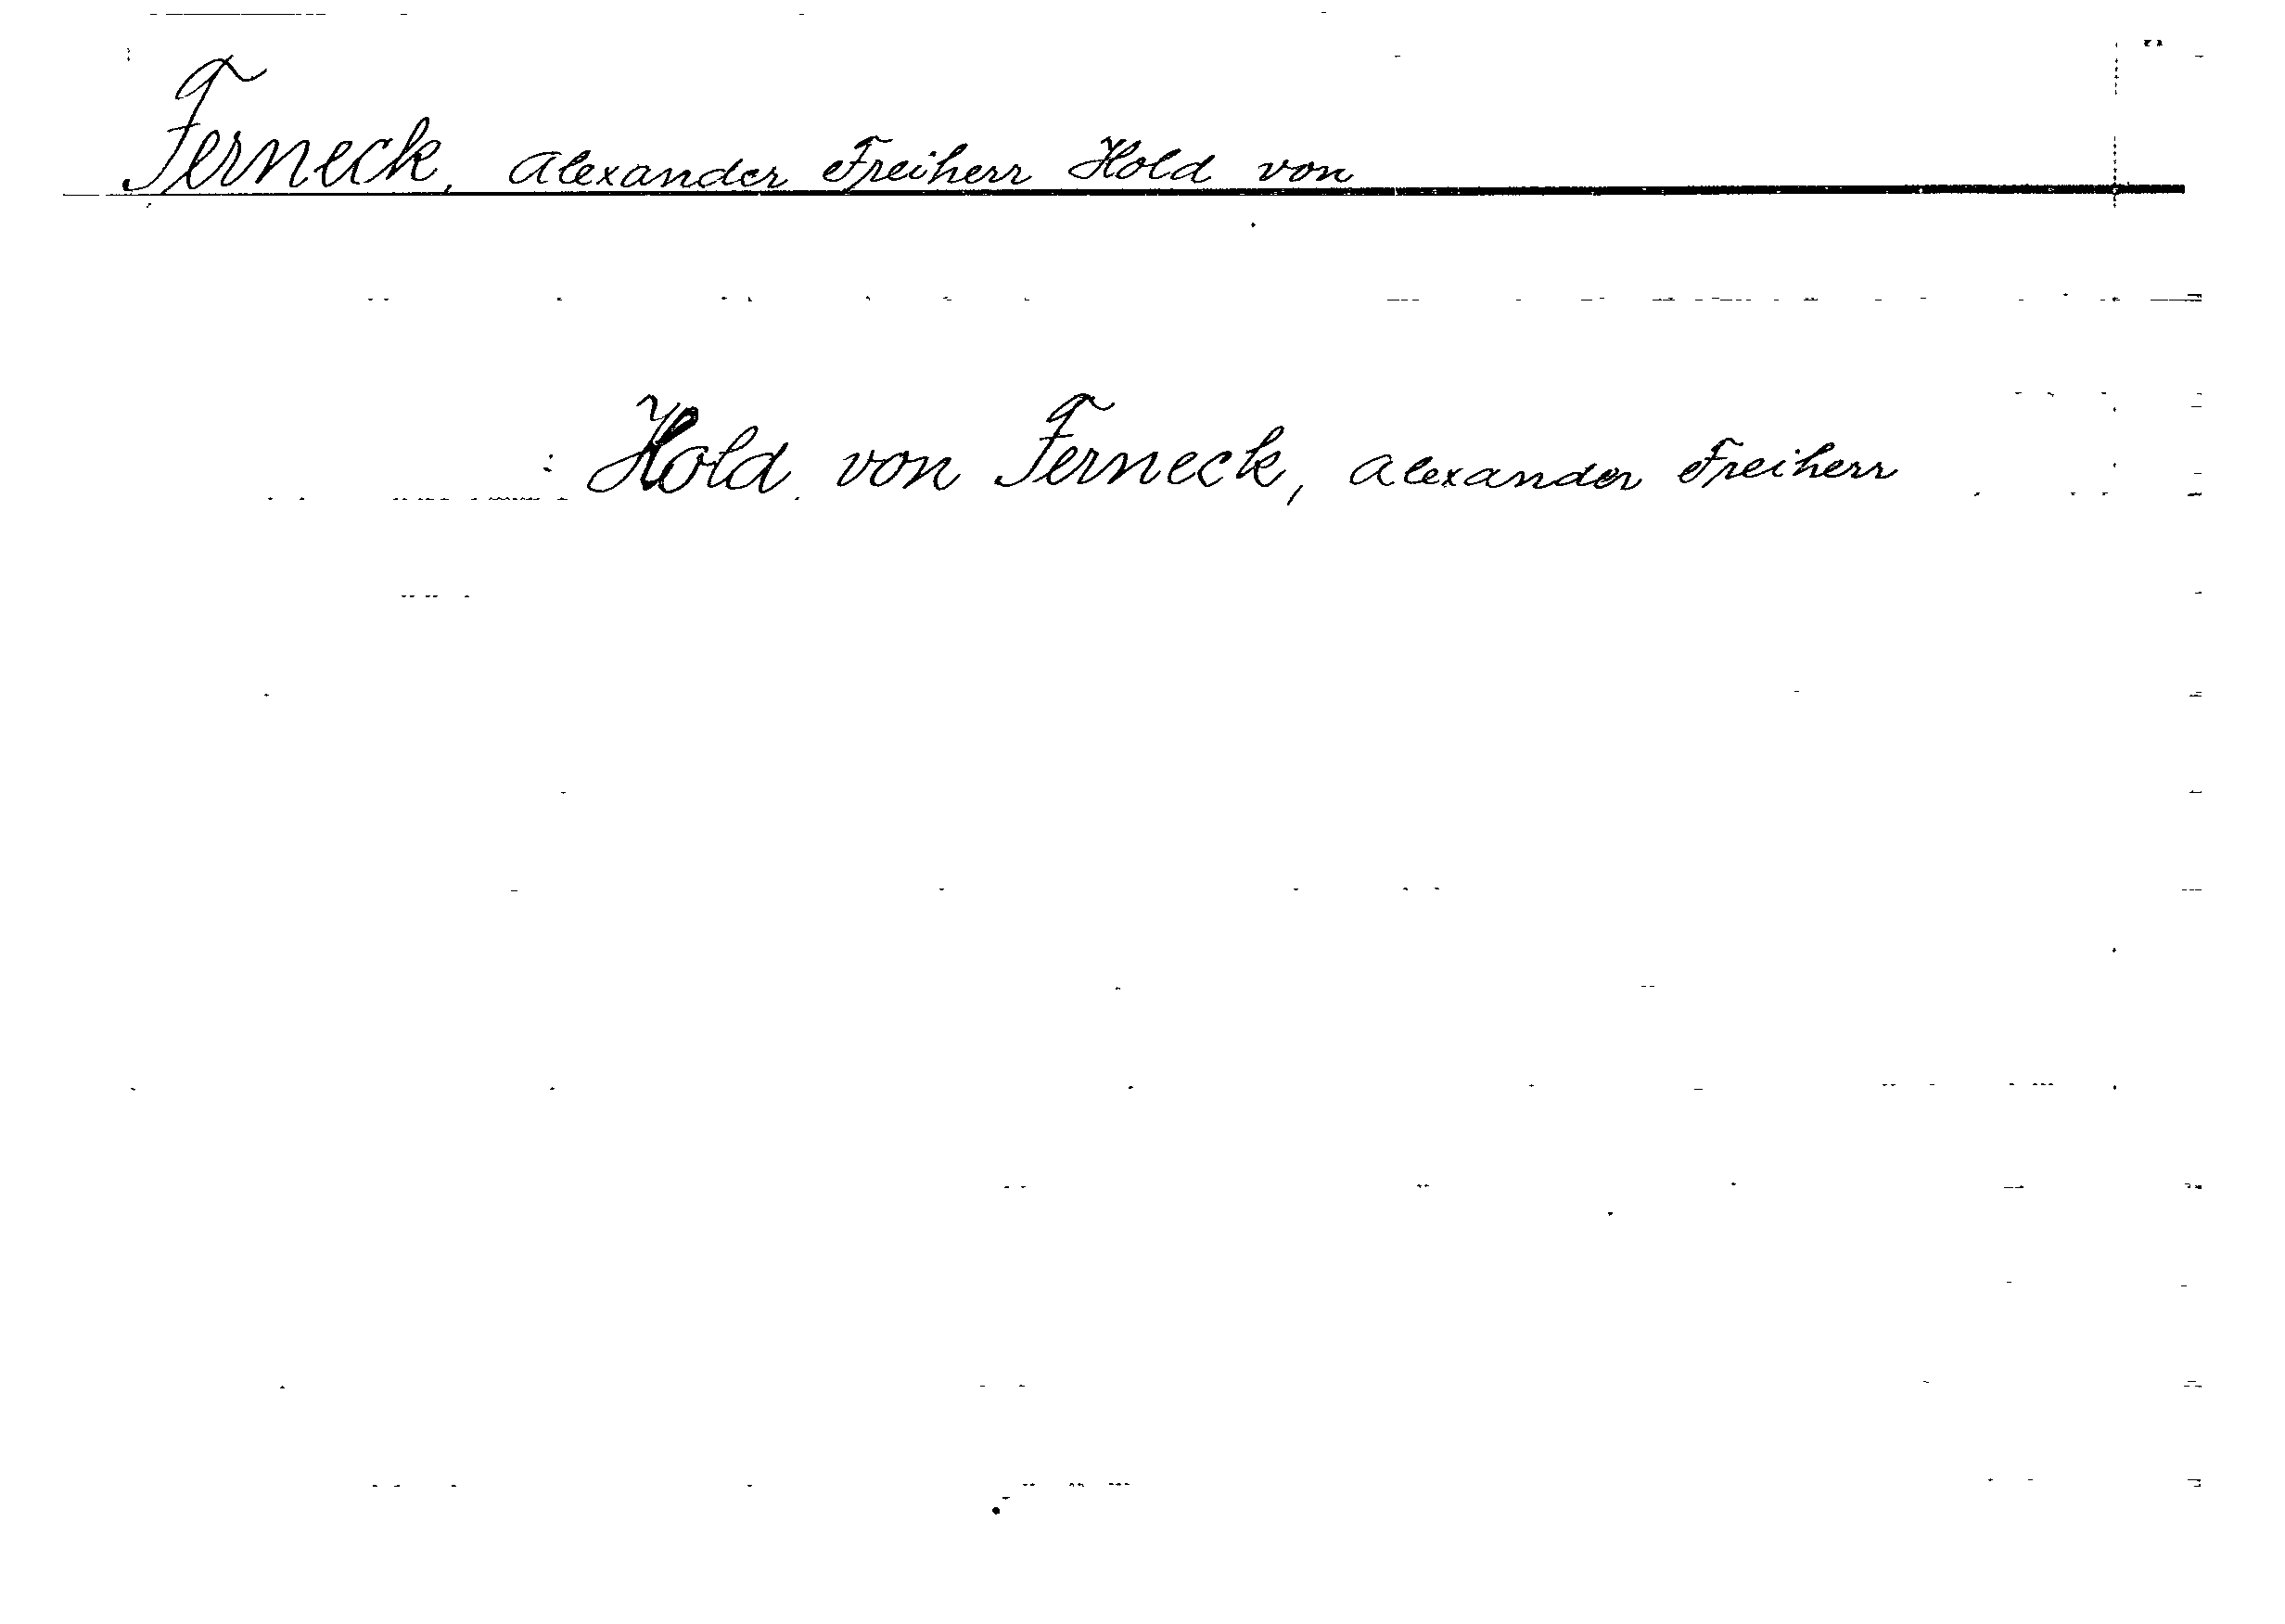 Ferneck, Alexander Freiherr Hold von
: Hold von Ferneck, Alexander Freiherr